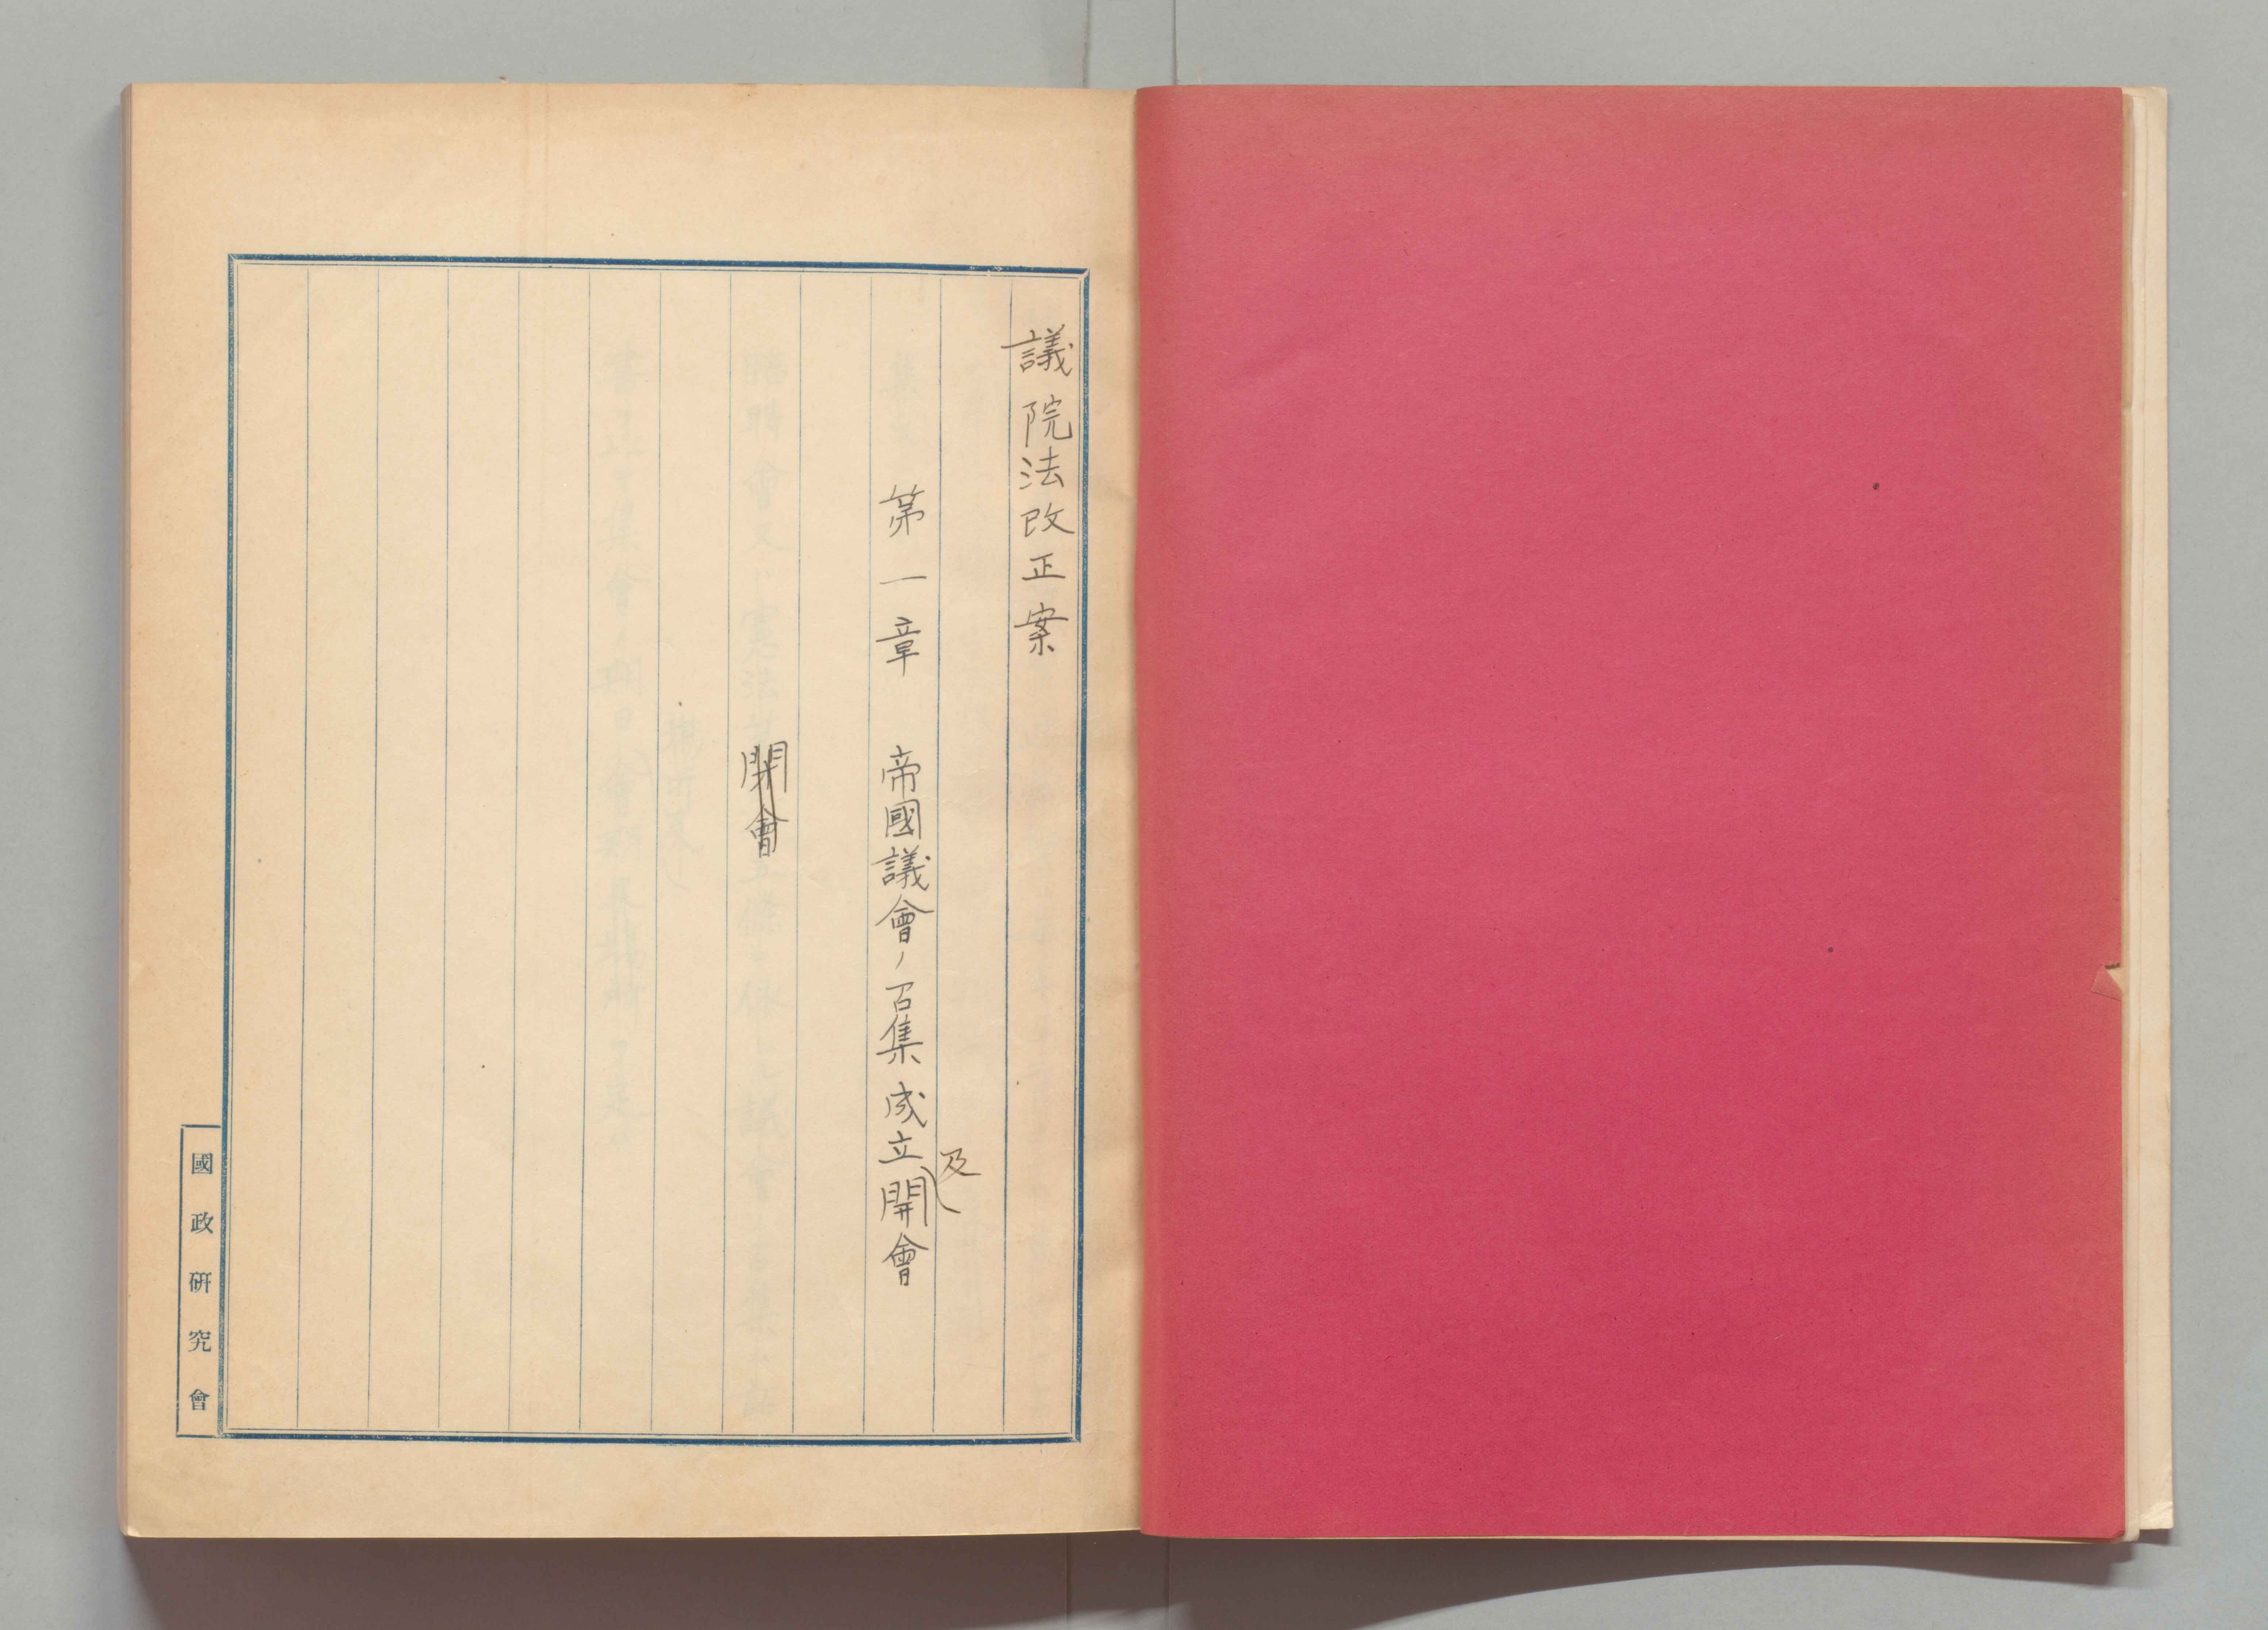 議院法改正案
第一章 帝國議會ノ召集成立及開會
開會
國政研究會